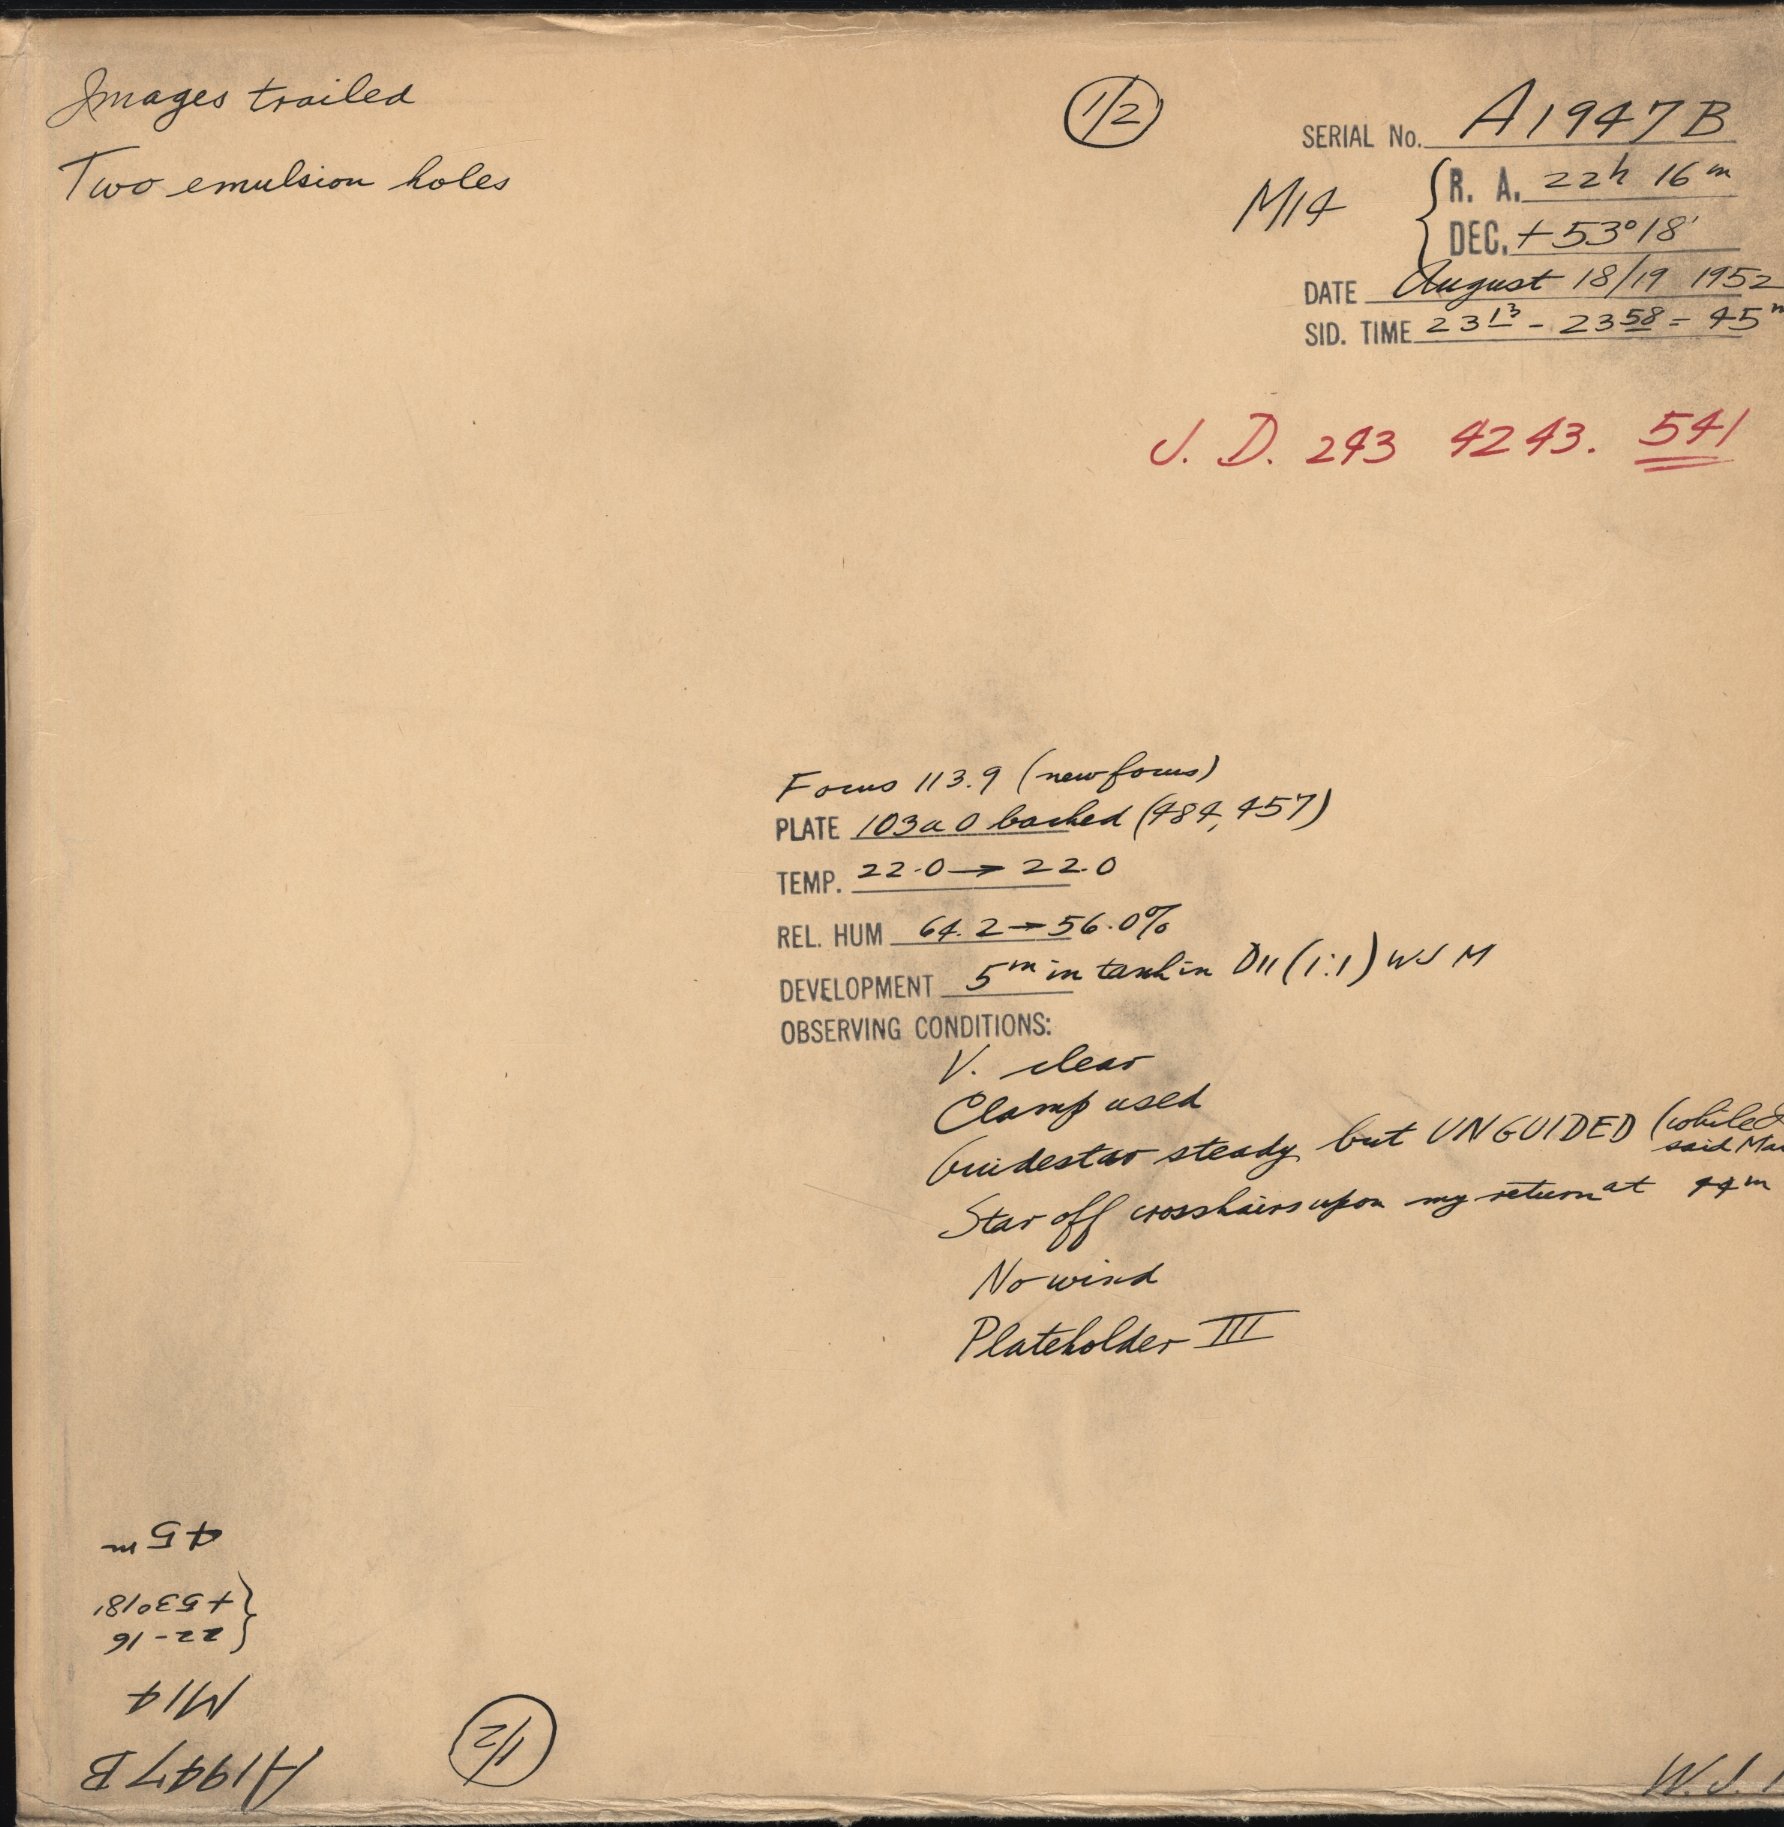 Images trailed
Two emulsion holes
1/2
SERIAL No. A1947B
M14
R. A. 22h 16m
DEC. +53°18'
DATE August 18/19 1952
SID. TIME 23 13 - 23 58 = 45m
J. D. 243 4243. 541
Focus 113.9 (new focus)
PLATE 103a O backed (484, 457)
TEMP. 22.0 → 22.0
REL. HUM 64.2 → 56.0%
DEVELOPMENT 5m in tank in D11 (1:1) WJM
OBSERVING CONDITIONS:
V. clear
Clamp used
Guidestar steady but UNGUIDED (while
said
Star off crosshairs upon my return at 44m
No wind
Plateholder III
45m
+53°18'
22-16
M14
A1947B
1/2
W.J.